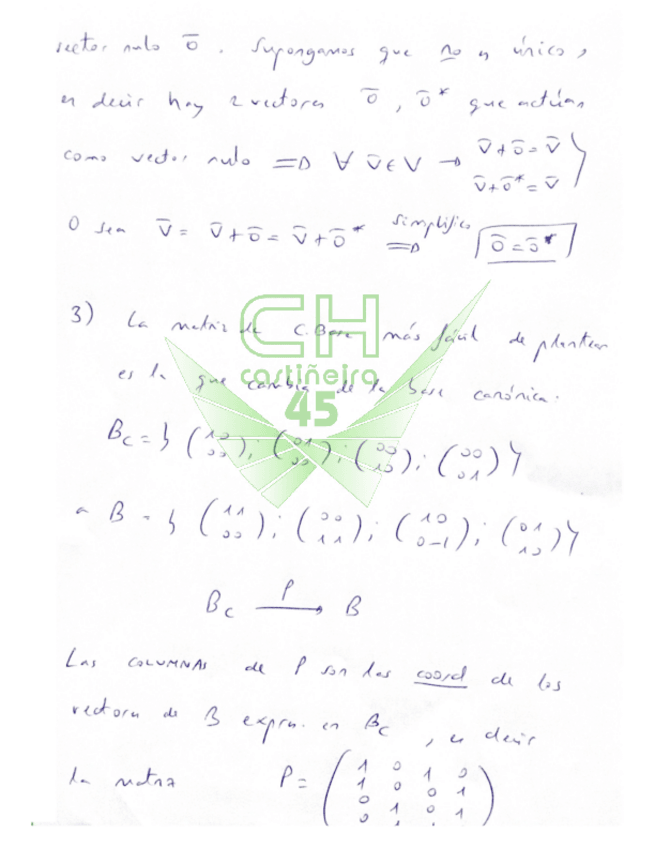 vector nulo o̅. Supongamos que no es único,
es decir hay 2 vectores o̅, o̅* que actúan
como vector nulo ⇒ ∀ v̅ ∈ V → v̅+o̅=v̅
v̅+o̅*=v̅ }
O sea v̅ = v̅+o̅ = v̅+o̅* simplifico ⇒ o̅=o̅*
3) La matriz de C. Base más fácil de plantear
es la que cambia de la base canónica.
CH
castiñeira
45
Bc = { (1 0 / 0 0); (0 1 / 0 0); (0 0 / 1 0); (0 0 / 0 1) }
a B = { (1 1 / 0 0); (0 0 / 1 1); (1 0 / 0 -1); (0 1 / 1 0) }
Bc P → B
Las COLUMNAS de P son las coord de los
vectores de B expres. en Bc, es decir
la matriz P = ( 1 0 1 0
1 0 0 1
0 1 0 1